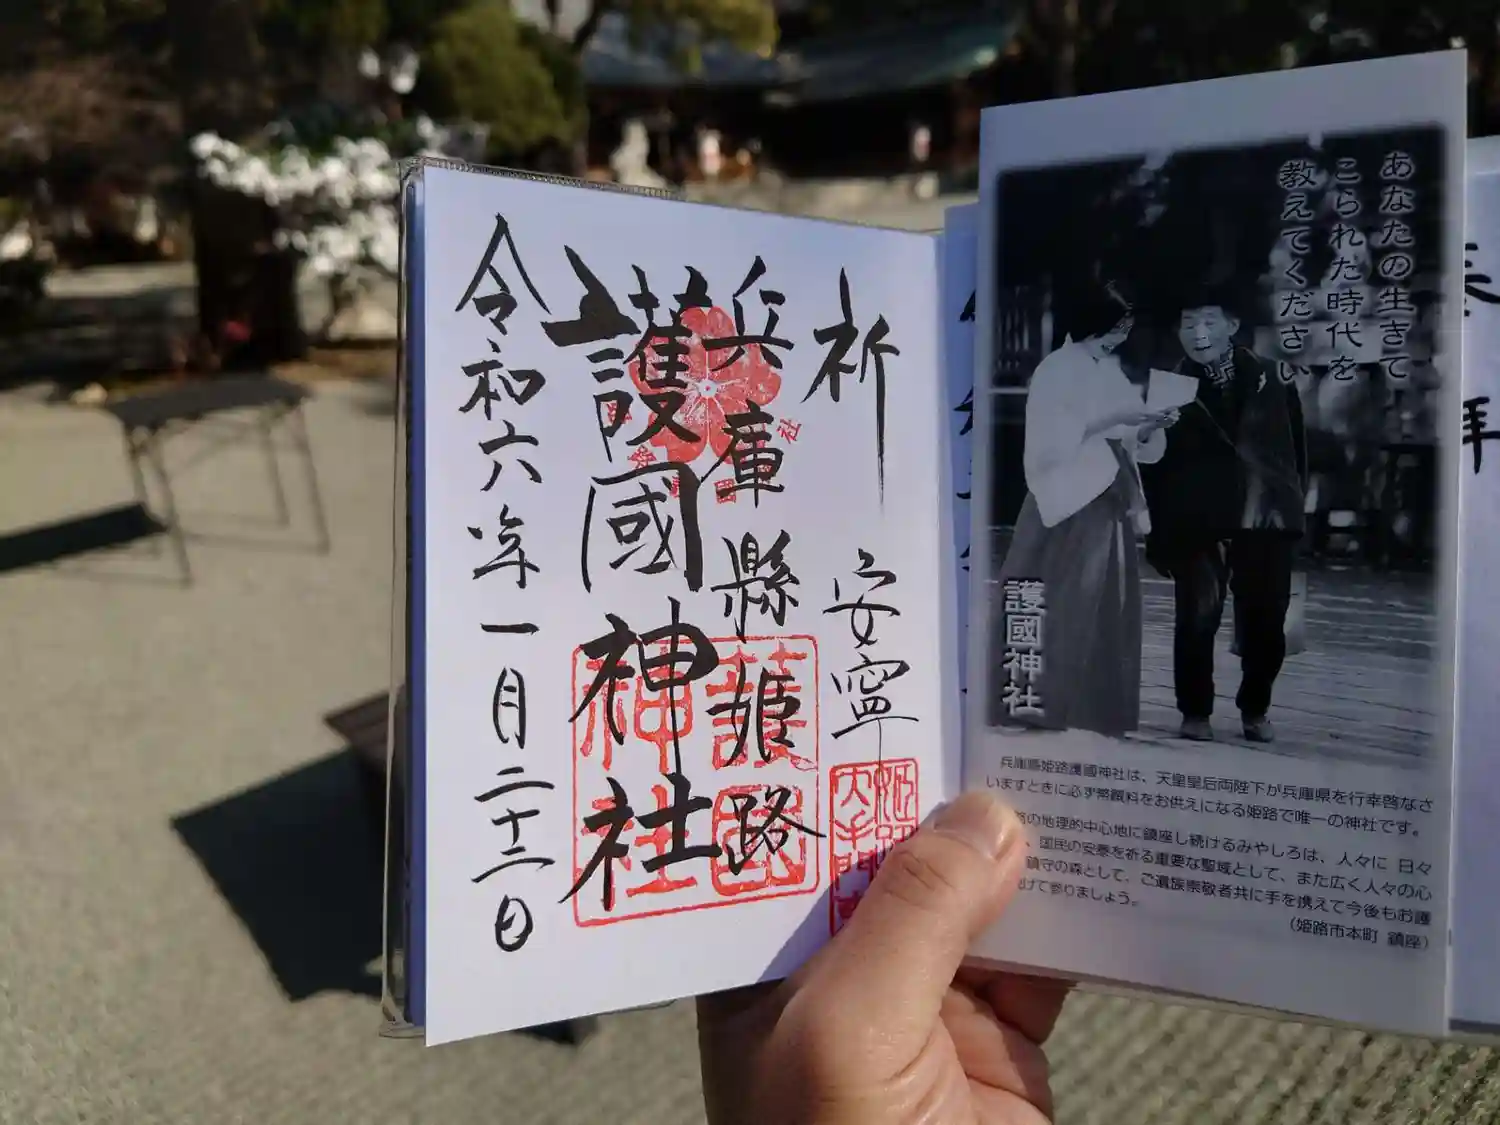 あなたの生きて
こられた時代を
教えてください
護國神社
兵庫縣姫路護國神社は、天皇皇后両陛下が兵庫県を行幸啓なさ
いますときに必ず幣饌料をお供えになる姫路で唯一の神社です。
の地理的中心地に鎮座し続けるみやしろは、人々に 日々
、国民の安泰を祈る重要な聖域として、また広く人々の心
鎮守の森として、ご遺族崇敬者共に手を携えて今後もお護
げて参りましょう。
（姫路市本町 鎮座）
祈 安寧
兵庫縣姫路
護國神社
令和六年一月二十二日
護國
神社
拝